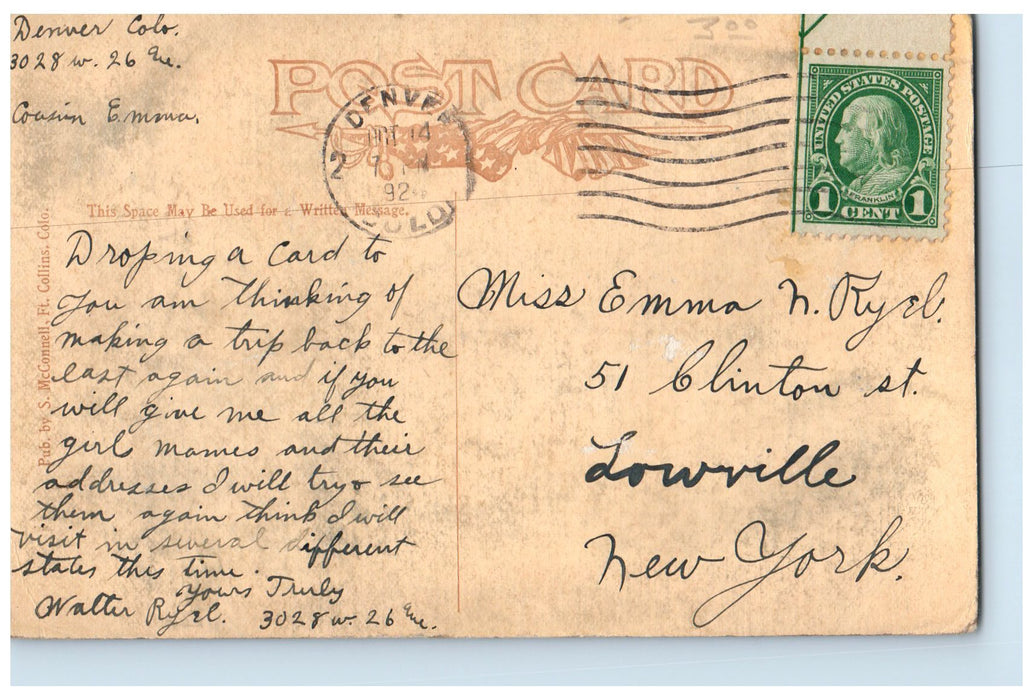 Denver Colo.
3028 w. 26 Ave.
Cousin Emma,
3.00
POST CARD
DENVER
COLO.
2
14
192
UNITED STATES POSTAGE
FRANKLIN
1 CENT 1
This Space May Be Used for a Written Message.
Pub. by S. McConnell, Ft. Collins, Colo.
Droping a card to
you am thinking of
making a trip back to the
east again and if you
will give me all the
girls names and their
addresses I will try o see
them again think I will
visit in several different
states this time.
Yours Truely
Walter Ryel. 3028 w. 26 Ave.
Miss Emma N. Ryel.
51 Clinton st.
Lowville
New York.